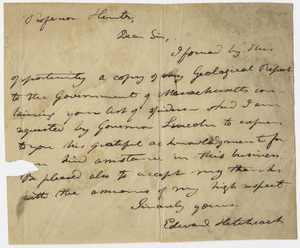 Professor Hentz,
Dear Sir,
I forward by this
opportunity a copy of my Geological Report
to the Government of Massachusetts con
taining your list of Spiders and I am
requested by Governor Lincoln to express
to you his grateful acknowledgment for
your kind assistance in this business
Be pleased also to accept my thanks
with the assurance of my high respect
Sincerely yours
Edward Hitchcock